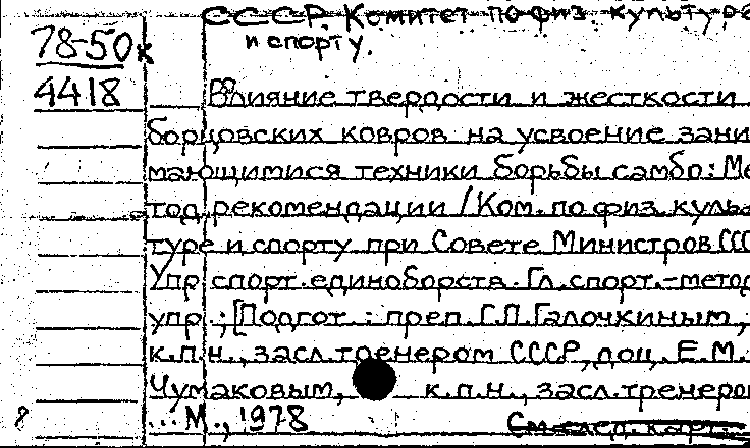 СССР. Комитет по физ. культуре
78-50к и спорту.
4418 Влияние твердости и жесткости
борцовских ковров на усвоение зани
мающимися техники борьбы самбо: Ме
тод рекомендации / Ком. по физ. куль
туре и спорту при Совете Министров ССС
Упр спорт. единоборств. Гл. спорт.-метод
упр.; [Подгот.: преп. Г.П. Галочкиным,
к.п.н., засл. тренером СССР, доц. Е.М.
Чумаковым, к.п.н., засл. тренеро
8 ... М., 1978 См. след. карт